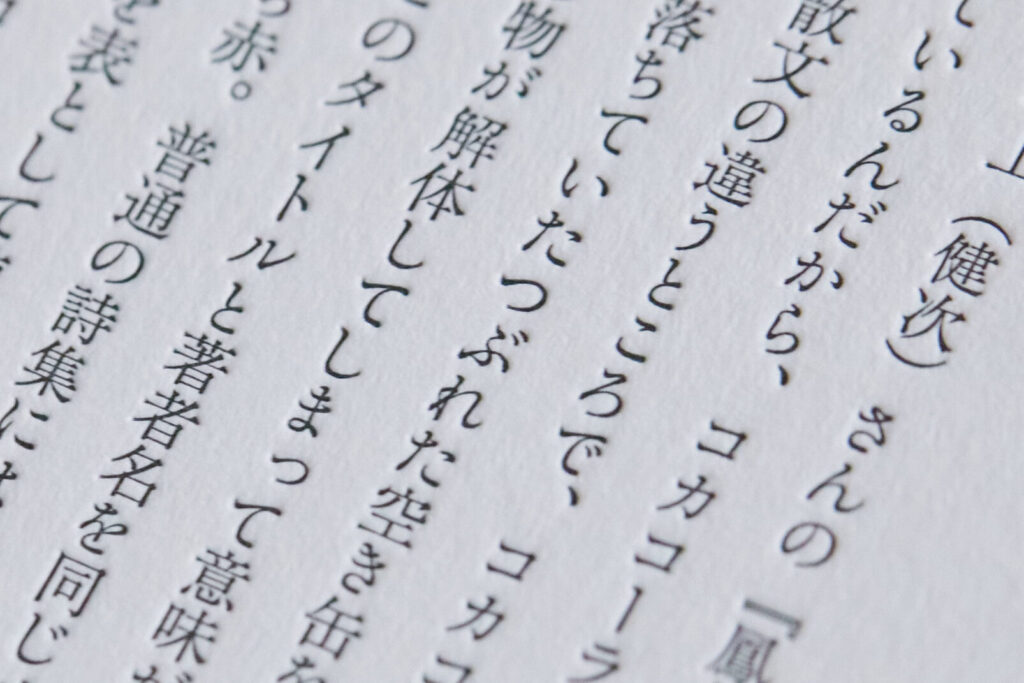 上（健次）さんの『鳳
ているんだから、コカコーラ
散文の違うところで、コカコ
落ちていたつぶれた空き缶を
物が解体してしまって意味
このタイトルと著者名を同じ
赤。普通の詩集に
を表として